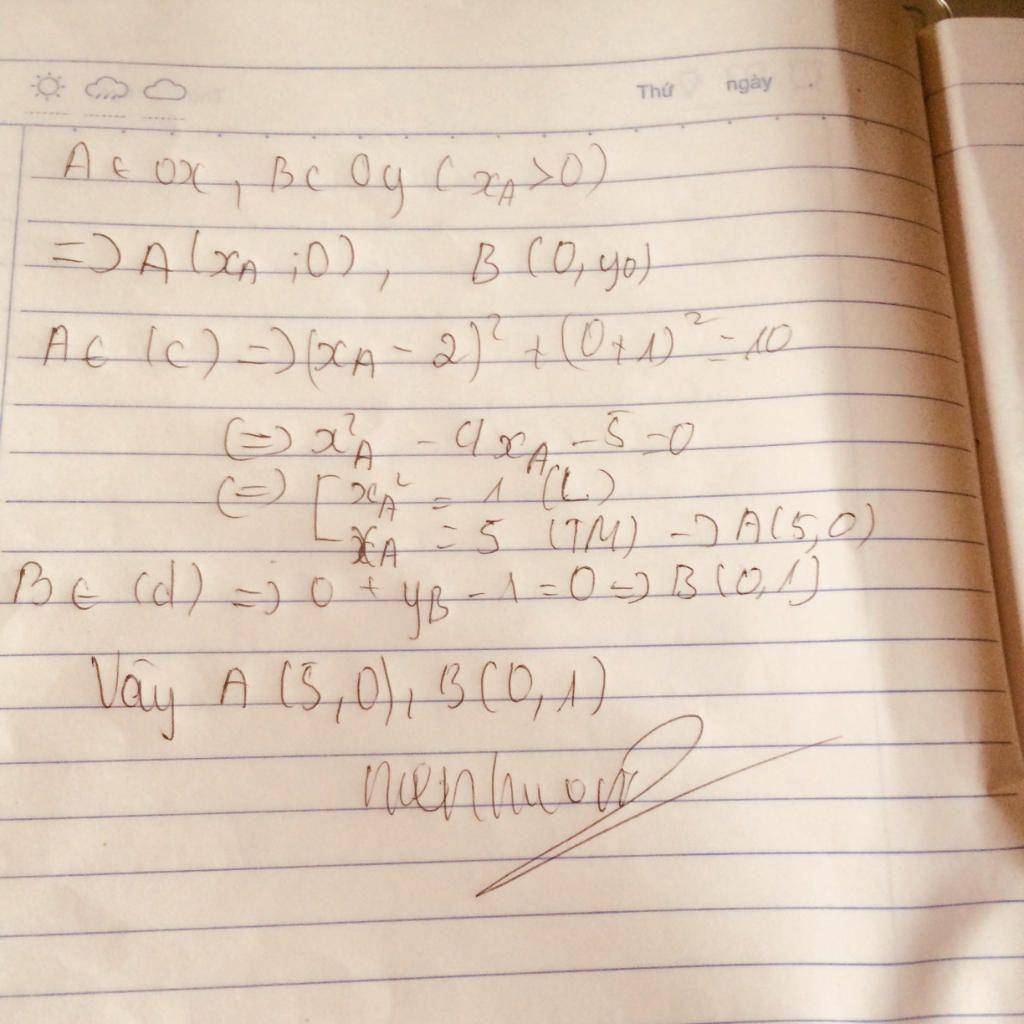 Thứ ngày
A ∈ Ox, B ∈ Oy (x_A > 0)
=> A(x_A ; 0), B (0, y0)
A ∈ (c) => (x_A - 2)² + (0 + 1)² = 10
(=) x²_A - 4x_A - 5 = 0
(=) [ x_A² = 1 (L)
x_A = 5 (TM) -> A(5,0)
B ∈ (d) => 0 + y_B - 1 = 0 => B(0,1)
Vậy A (5,0), B(0,1)